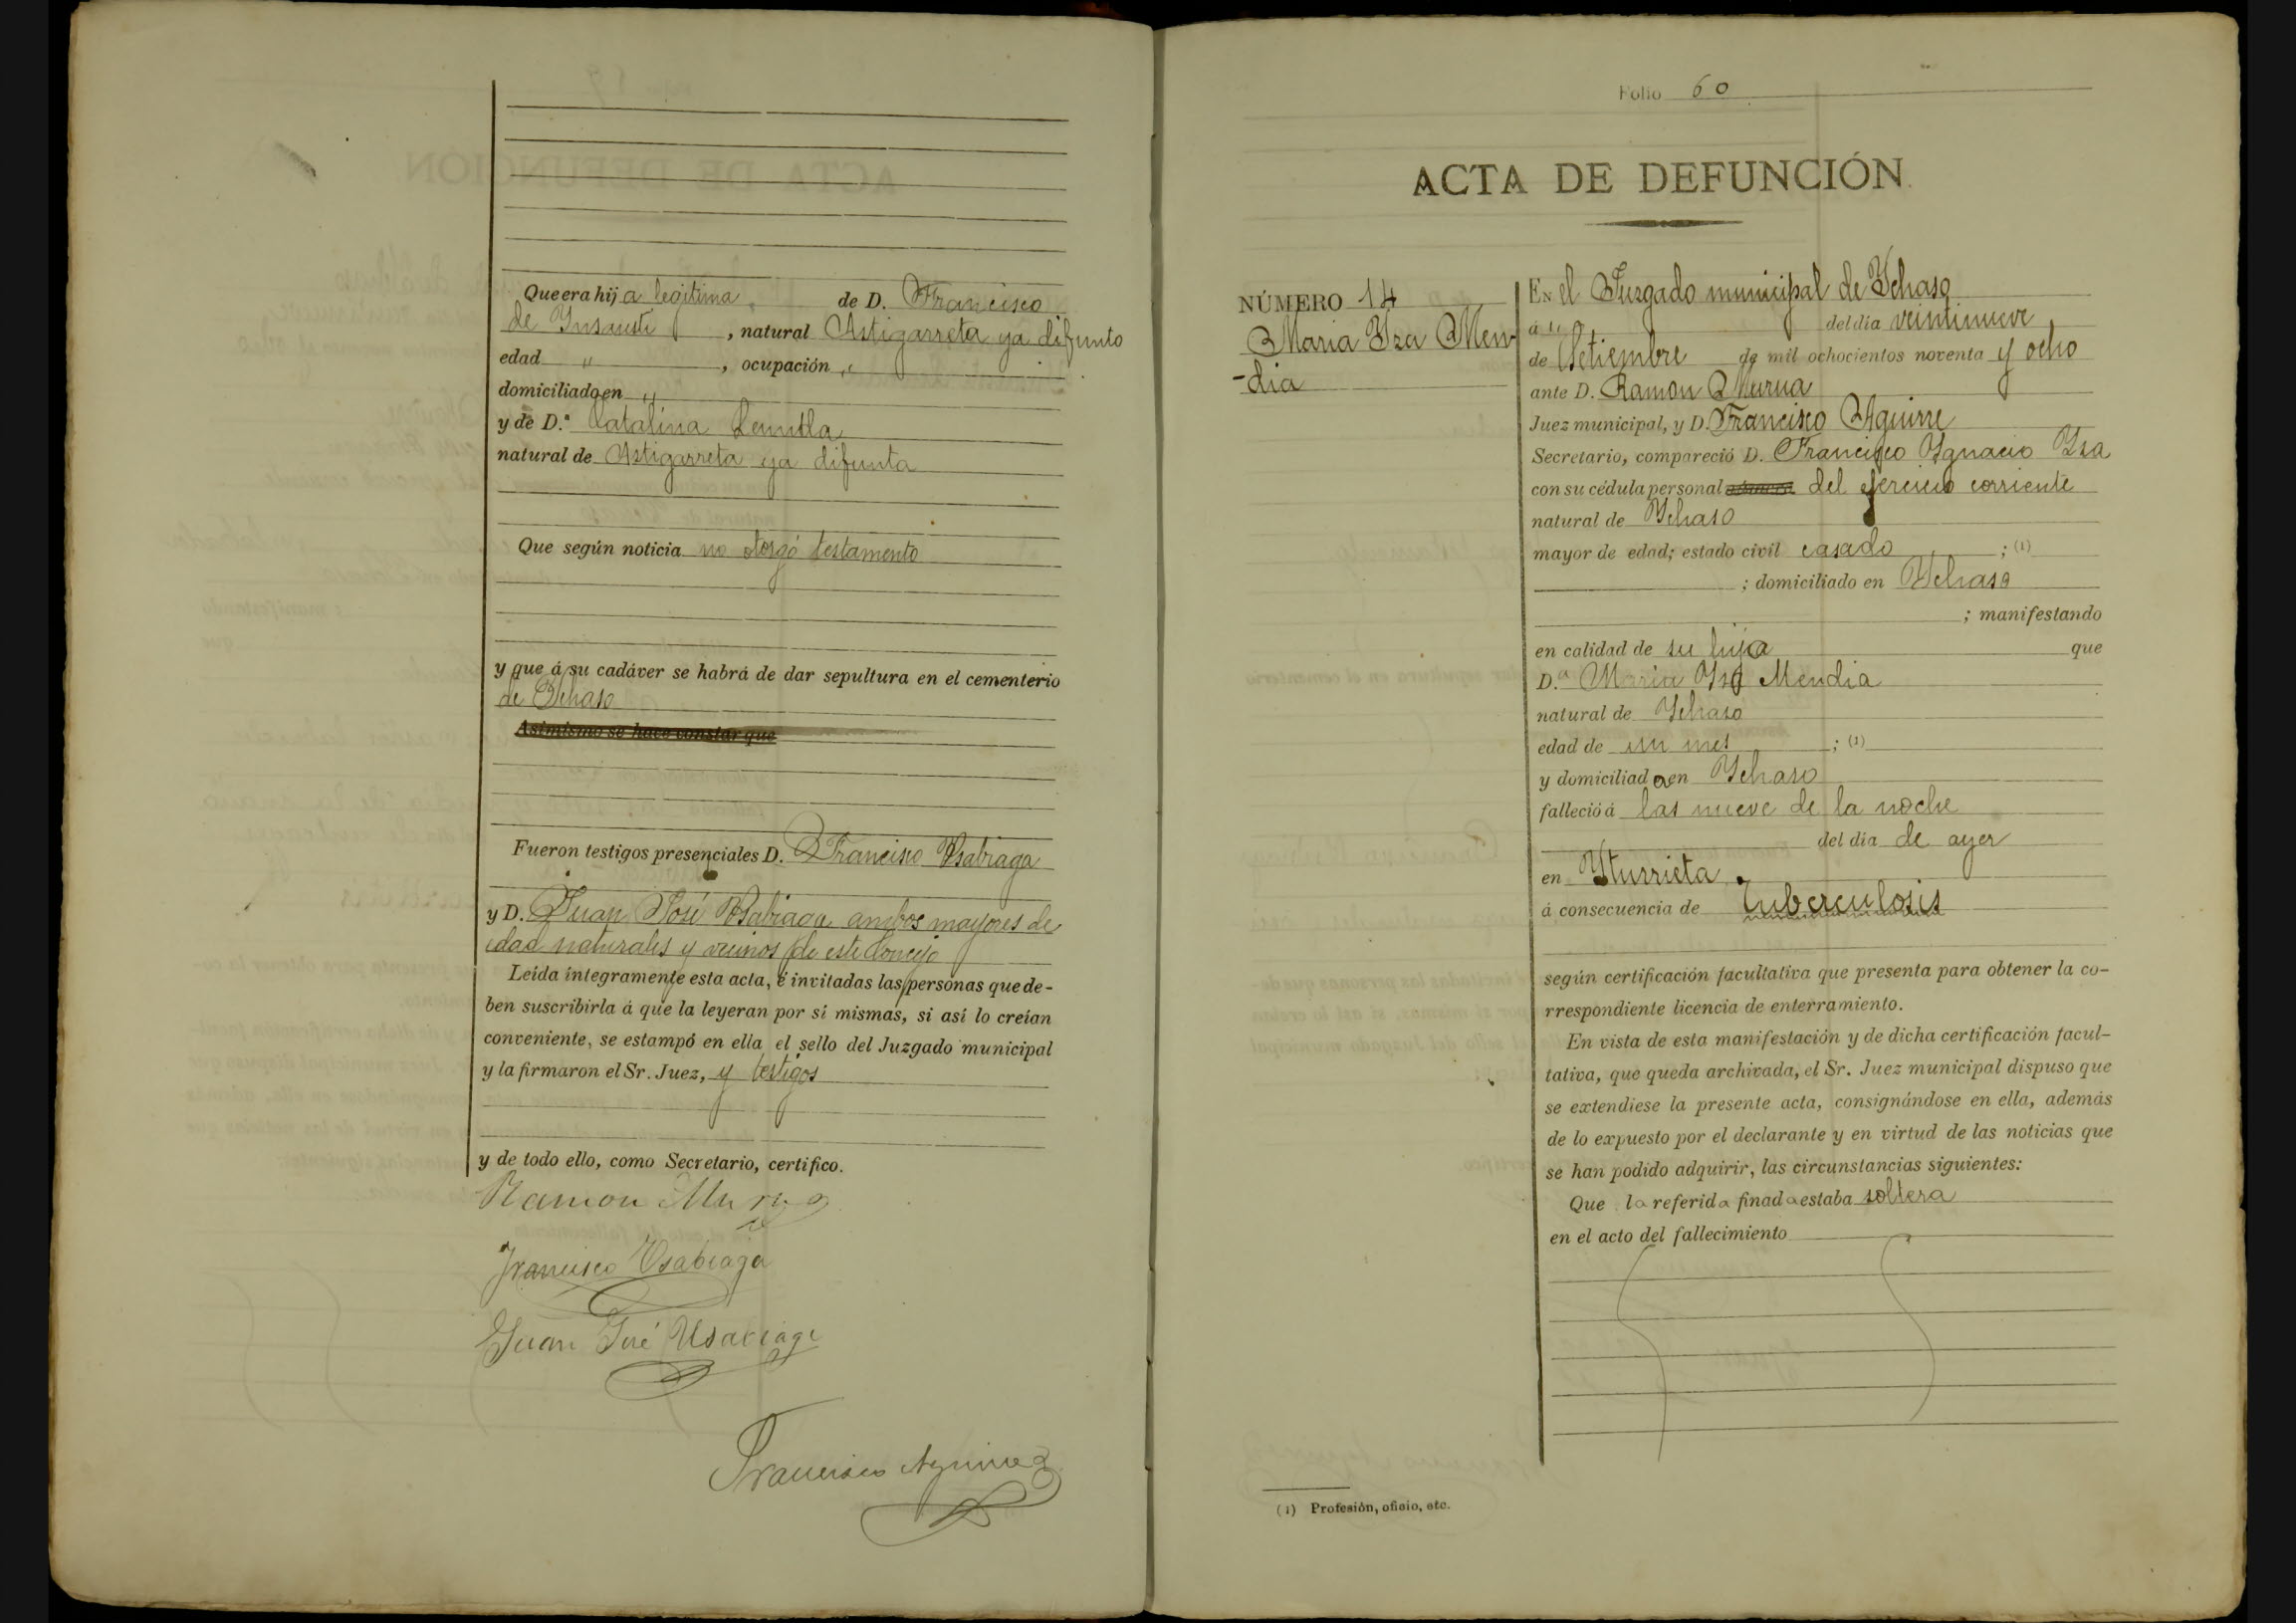 Que era hija legitima de D. Francisco
de Insausti, natural Astigarreta ya difunto
edad " , ocupación "
domiciliado en "
y de D.ª Catalina
natural de Astigarreta ya difunta
Que según noticia no otorgó testamento
y que á su cadáver se habrá de dar sepultura en el cementerio
de Ychaso
Asimismo se hace constar que
Fueron testigos presenciales D. Francisco Usabiaga
y D. Juan José Usabiaga ambos mayores de
edad naturales y vecinos de este Concejo
Leída íntegramente esta acta, é invitadas las personas que de-
ben suscribirla á que la leyeran por sí mismas, si así lo creían
conveniente, se estampó en ella el sello del Juzgado municipal
y la firmaron el Sr. Juez, y testigos
y de todo ello, como Secretario, certifico.
Ramon Murua
Francisco Usabiaga
Juan José Usabiaga
Francisco Aguirre
Folio 60
ACTA DE DEFUNCIÓN
NÚMERO 14
Maria Yza Men
-dia
En el Juzgado municipal de Ychaso
á " del dia veintinueve
de Setiembre de mil ochocientos noventa y ocho
ante D. Ramon Murua
Juez municipal, y D. Francisco Aguirre
Secretario, compareció D. Francisco Ygnacio Yza
con su cédula personal del ejercicio corriente
natural de Ychaso
mayor de edad; estado civil casado ; (1)
; domiciliado en Ychaso
; manifestando
en calidad de su hija que
D.ª Maria Yza Mendia
natural de Ychaso
edad de un mes ; (1)
y domiciliada en Ychaso
falleció á las nueve de la noche
del día de ayer
en Yturrieta
á consecuencia de tuberculosis
según certificación facultativa que presenta para obtener la co-
rrespondiente licencia de enterramiento.
En vista de esta manifestación y de dicha certificación facul-
tativa, que queda archivada, el Sr. Juez municipal dispuso que
se extendiese la presente acta, consignándose en ella, además
de lo expuesto por el declarante y en virtud de las noticias que
se han podido adquirir, las circunstancias siguientes:
Que la referida finada estaba soltera
en el acto del fallecimiento
(1) Profesión, oficio, etc.